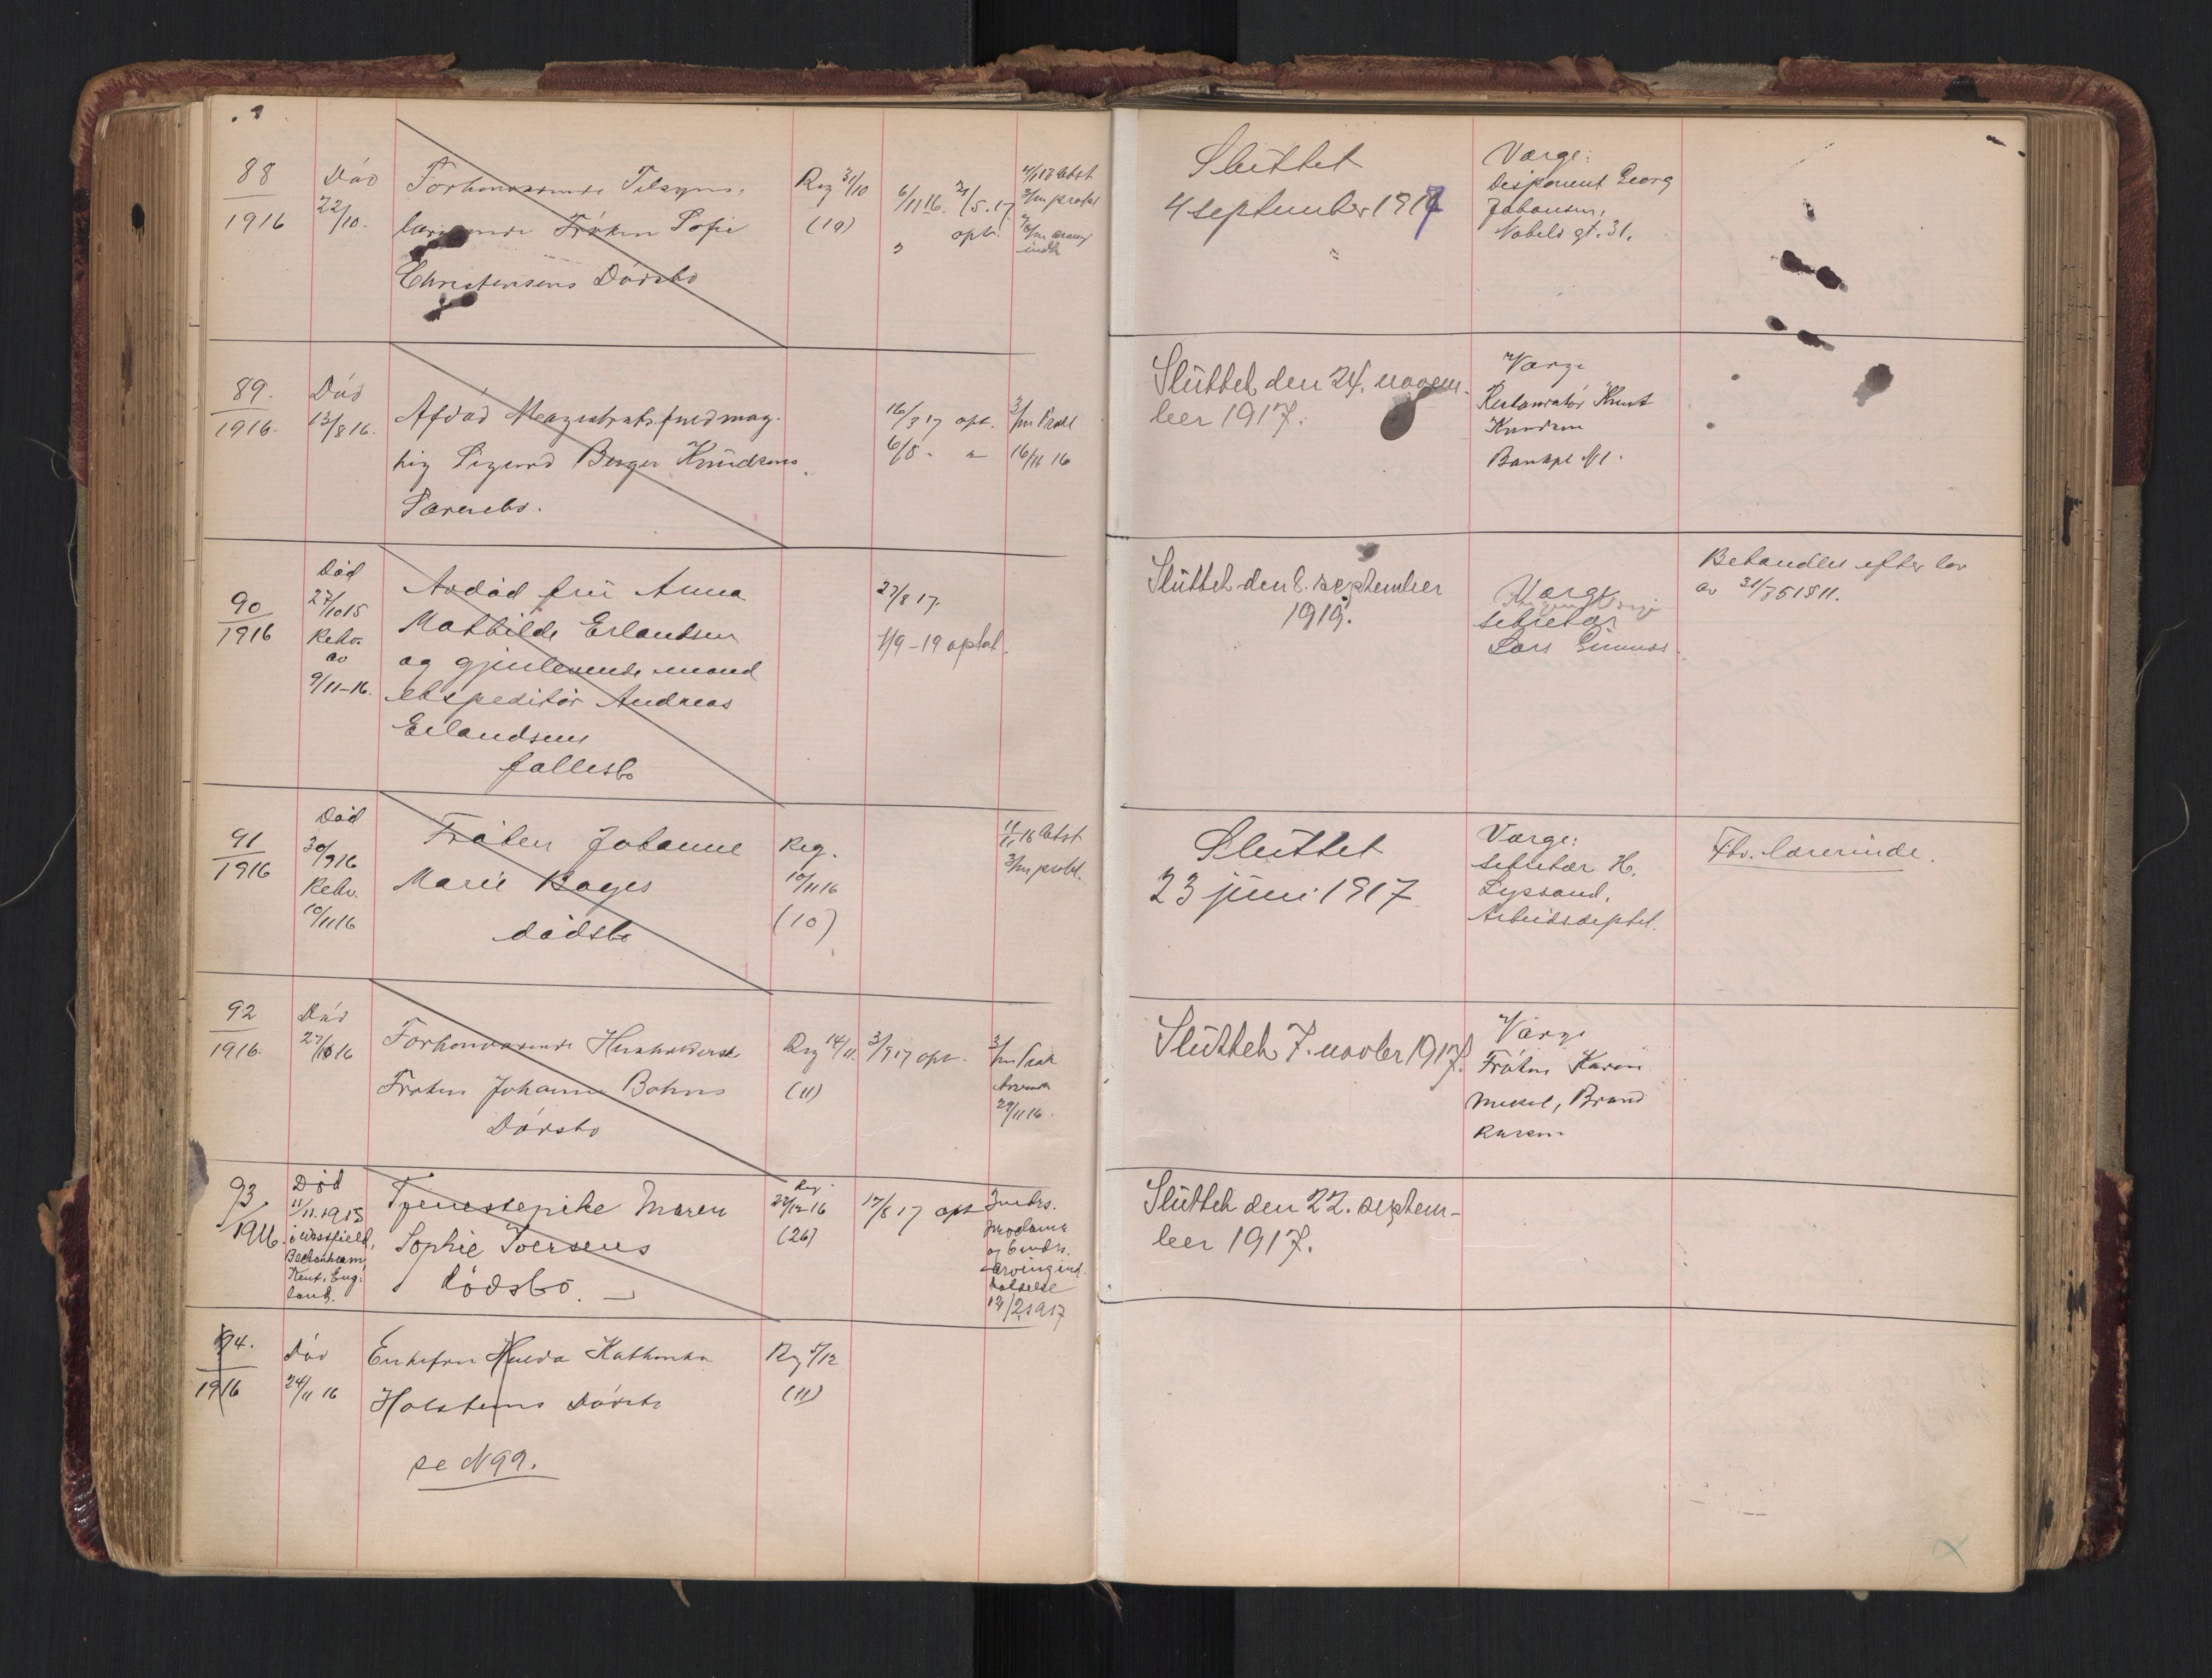 88
1916
Død
22/10.
Forhenværende Tilsyns-
lærerinde Frøken Sofie
Christensens Dødsbo
Reg 31/10
(10)
6/11 16. 21/5.17
opt.
3/m prokl
Sluttet
4 september 1917
Værge:
Disponent Georg
Johansen,
Nobels gt. 31.
89.
1916.
Død
13/8 16.
Afdød Magistratsfuldmæg-
tig Sigurd Berger Knudsens
Særeiebo.
16/3 17 opt.
6/8 - "
3/m Prokl
16/11 16
Sluttet den 24. novem-
ber 1917.
Værge
Restauratør Knut
Knudsen
Bankpl. N 1.
90
1916
Død
27/10 15
Rekv.
av
9/11-16.
Avdød fru Anna
Mathilde Erlandsen
og gjenlevende mand
ekspeditør Andreas
Erlandsens
fællesbo
27/8 17.
1/9-19 optat.
Sluttet den 8. september
1919.
Værge
sekretær
Lars
Behandles efter lov
av
91
1916
Død
30/9 16
Rekv.
10/11 16
Frøken Johanne
Marie Bøyes
dødsbo
Reg.
10/11 16
(10)
11/11 16 Utst
3/m prokl.
Sluttet
23 juni 1917
Værge:
sekretær H.
Lyssand,
Arbeidsdeptet.
Fhv. lærerinde.
92
1916.
Død
27/10 16
Forhenværende Husholderske
Frøken Johanne Bohns
Dødsbo
Reg 14/11
(11)
3/9 17 opt.
3/m Prok
29/11 16.
Sluttet 7. novbr 1917.
Værge
Frøken Karen
93.
1916.
Død
11/11.1915
i Westfield,
Beckenham,
Kent, Eng-
land.
Tjenestepike Maren
Sophie Iversens
dødsbo. —
Reg.
22/12-16
(26)
17/8 17 opt
3 mdrs.
proclama
og 6 mdrs.
arvingind-
kaldelse
Sluttet den 22. septem-
ber 1917.
94.
1916
Død
24/11 16
Enkefru Hulda Kathinka
Holsteins Dødsbo
Reg 5/12
(11)
se N 99.